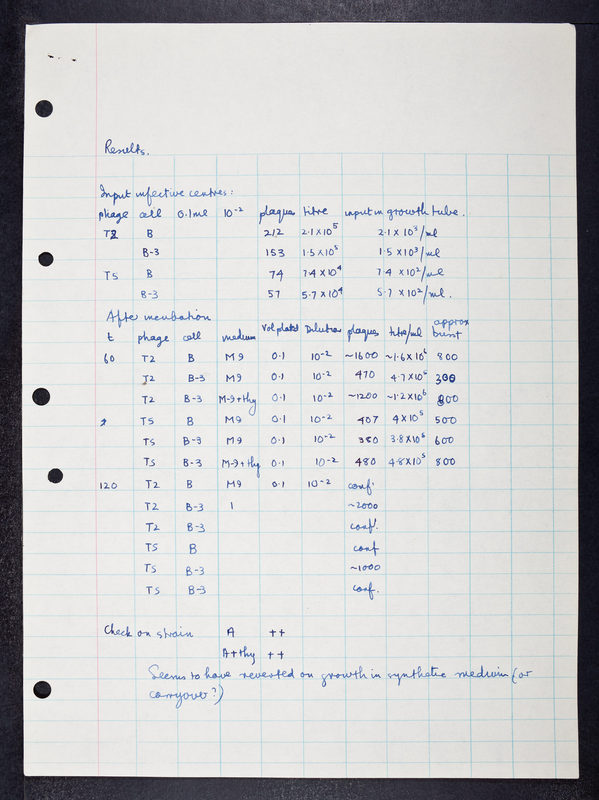 Results.
Input infective centres:
phage cell 0.1ml 10⁻² plaques titre input in growth tube.
T2 B 212 2.1×10⁵ 2.1 × 10³/ml
B-3 153 1.5×10⁵ 1.5×10³/ml
T5 B 74 7.4×10⁴ 7.4 × 10²/ml
B-3 57 5.7×10⁴ 5.7 × 10²/ml.
After incubation
t phage cell medium Vol plated Dilution plaques titre/ml approx burst
60 T2 B M9 0.1 10⁻² ~1600 ~1.6×10⁶ 800
T2 B-3 M9 0.1 10⁻² 470 4.7×10⁵ 300
T2 B-3 M-9+thy 0.1 10⁻² ~1200 ~1.2×10⁶ 800
T5 B M9 0.1 10⁻² 407 4×10⁵ 500
T5 B-3 M9 0.1 10⁻² 380 3.8×10⁵ 600
T5 B-3 M-9+thy 0.1 10⁻² 480 4.8×10⁵ 800
120 T2 B M9 0.1 10⁻² conf.
T2 B-3 1 ~2000
T2 B-3 conf.
T5 B conf
T5 B-3 ~1000
T5 B-3 conf.
Check on strain A ++
A+thy ++
Seems to have reverted on growth in synthetic medium (or
carryover?)